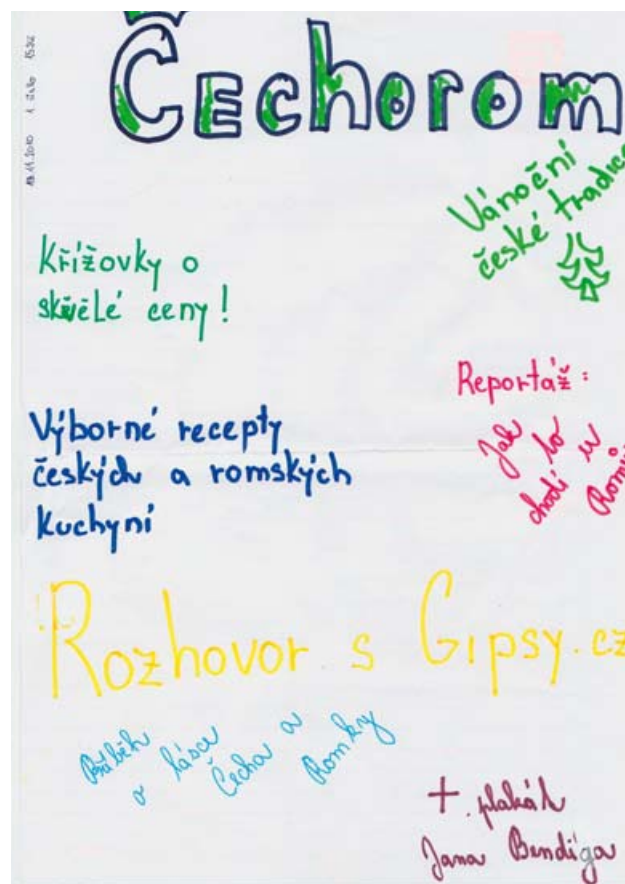 Čechorom
19.11.2010 1. číslo 15 Kč
Vánoční
české tradice
Křížovky o
skvělé ceny!
Reportáž:
Jak to
chodí u
Romů
Výborné recepty
českých a romských
kuchyní
! Rozhovor s Gipsy.cz
Příběh
o lásce
Čecha a
Romky
+ plakát
Jana Bendiga